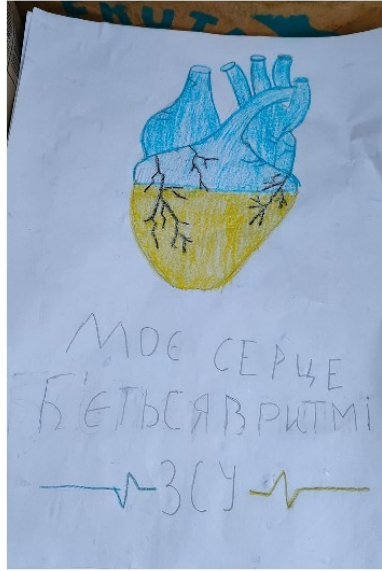 МОЄ СЕРЦЕ
Б'ЄТЬСЯ В РИТМІ
ЗСУ